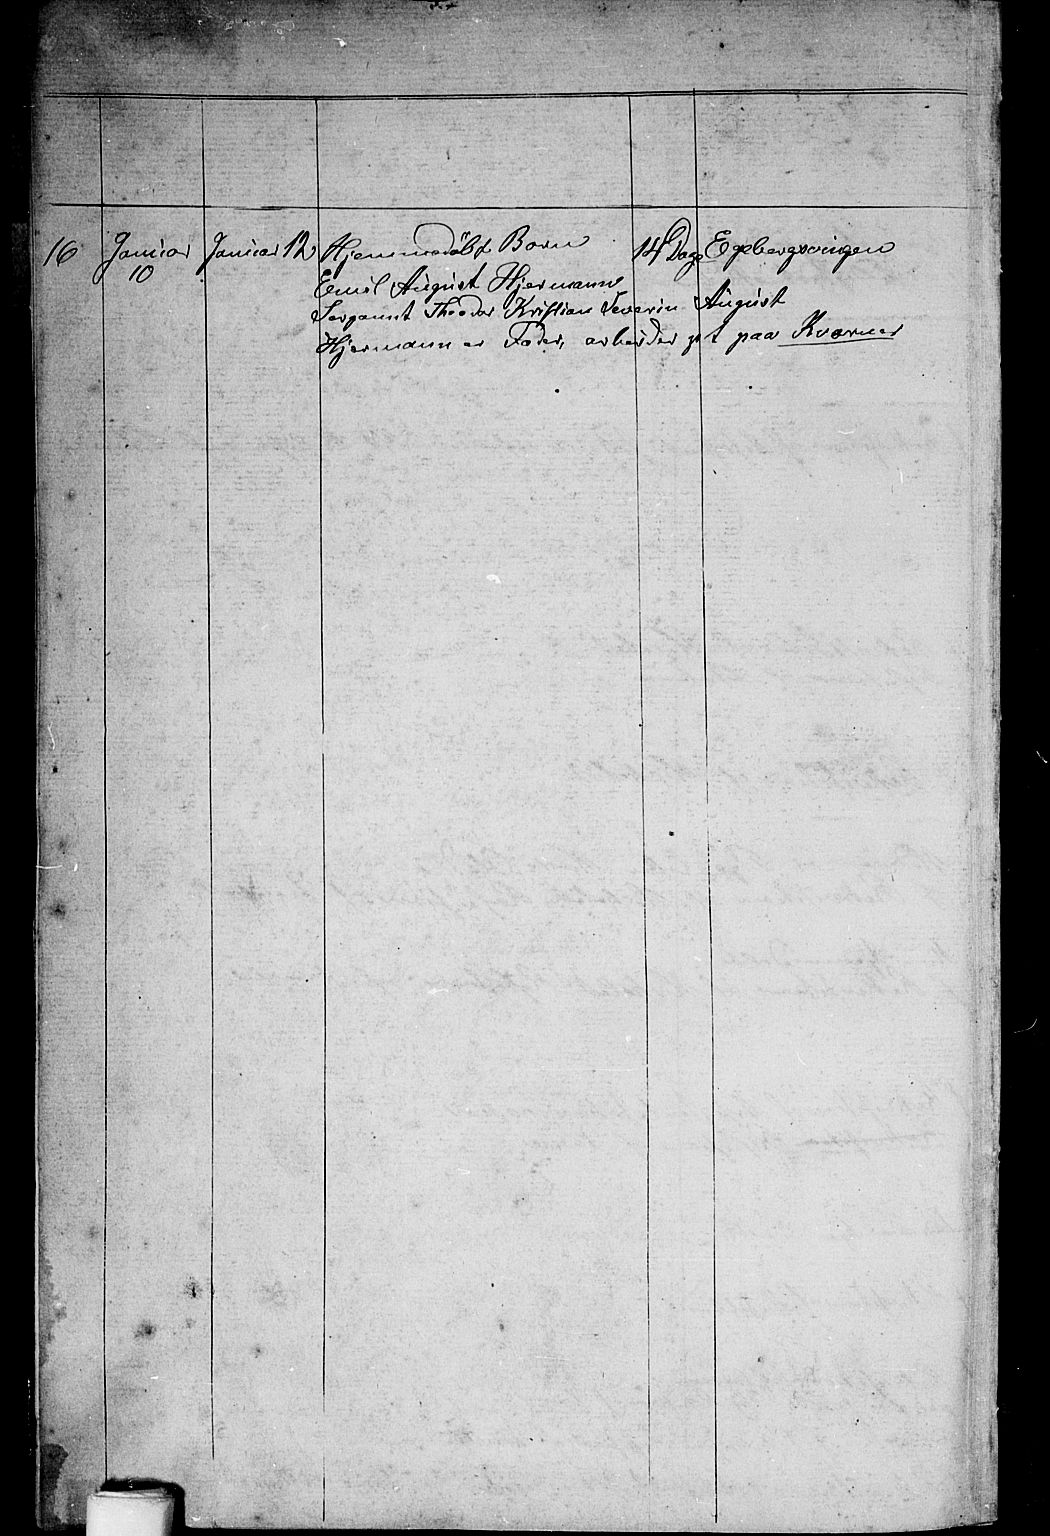 16 Januar Januar 12 Hjemmedöbt Barn 14 Dage Egebergsvingen
10
Emil August Hjermann
Sergeant Theodor Kristian Severin August
Hjermann er Fader, arbeider pt paa Kværner